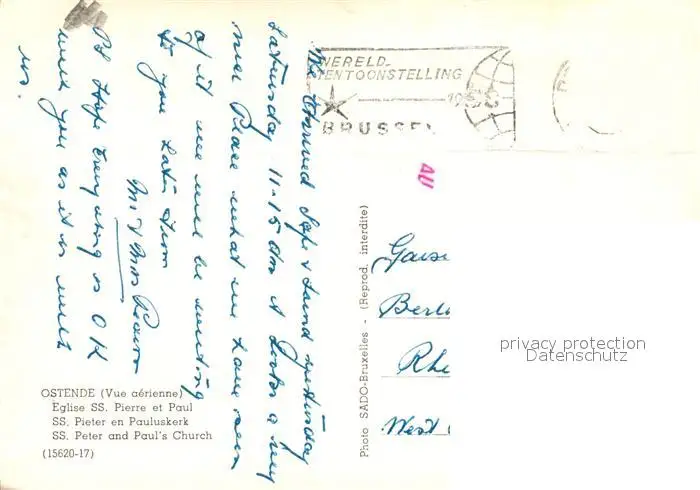 We arrived safe & sound yesterday
Saturday 11-15 am it looks a very
nice Place what we have seen
of it we will be writing
to you later from
Mr & Mrs
PS Hope Everything is OK
with you as it is with
us.
WERELD-
TENTOONSTELLING
BRUSSEL
AU
Berl
Rhe
West
privacy protection
Datenschutz
Photo SADO-Bruxelles - (Reprod. interdite)
OSTENDE (Vue aérienne)
Eglise SS. Pierre et Paul
SS. Pieter en Pauluskerk
SS. Peter and Paul's Church
(15620-17)